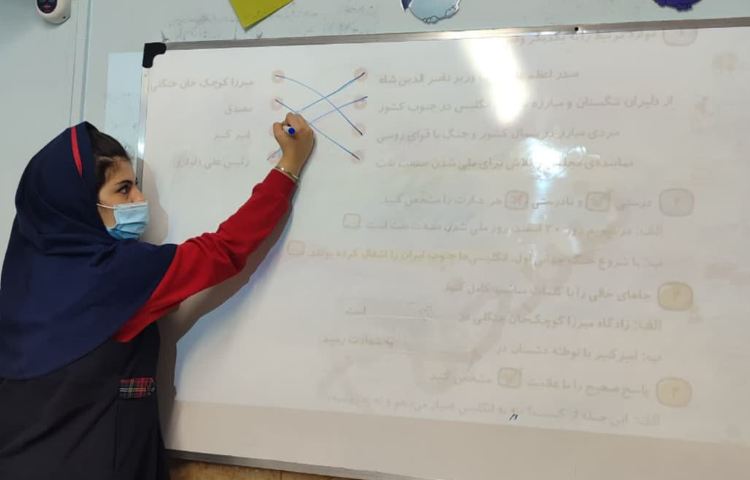 صدر اعظم وزیر ناصر الدین شاه
میرزا کوچک خان جنگلی
از دلیران تنگستان و مبارزه انگلیس در جنوب کشور
سعدی
مردی مبارز در شمال کشور و جنگ با قوای روسی
امیر کبیر
نماینده‌ی مجلس تلاش برای ملی شدن صنعت نفت
رئیس علی دلواری
۲ درستی و نادرستی هر عبارت را مشخص کنید.
الف: روز ملی شدن صنعت نفت است.
ب: با شروع جنگ جهانی اول، انگلیسی‌ها جنوب ایران را اشغال کرده بودند.
۳ جاهای خالی را با کلمات مناسب کامل کنید.
الف: زادگاه میرزا کوچک‌خان جنگلی است
ب: امیر کبیر با توطئه دشمنان در به شهادت رسید
۴ پاسخ صحیح را با علامت مشخص کنید.
الف: این جمله از کیست؟ به انگلیس امتیاز می‌دهم و